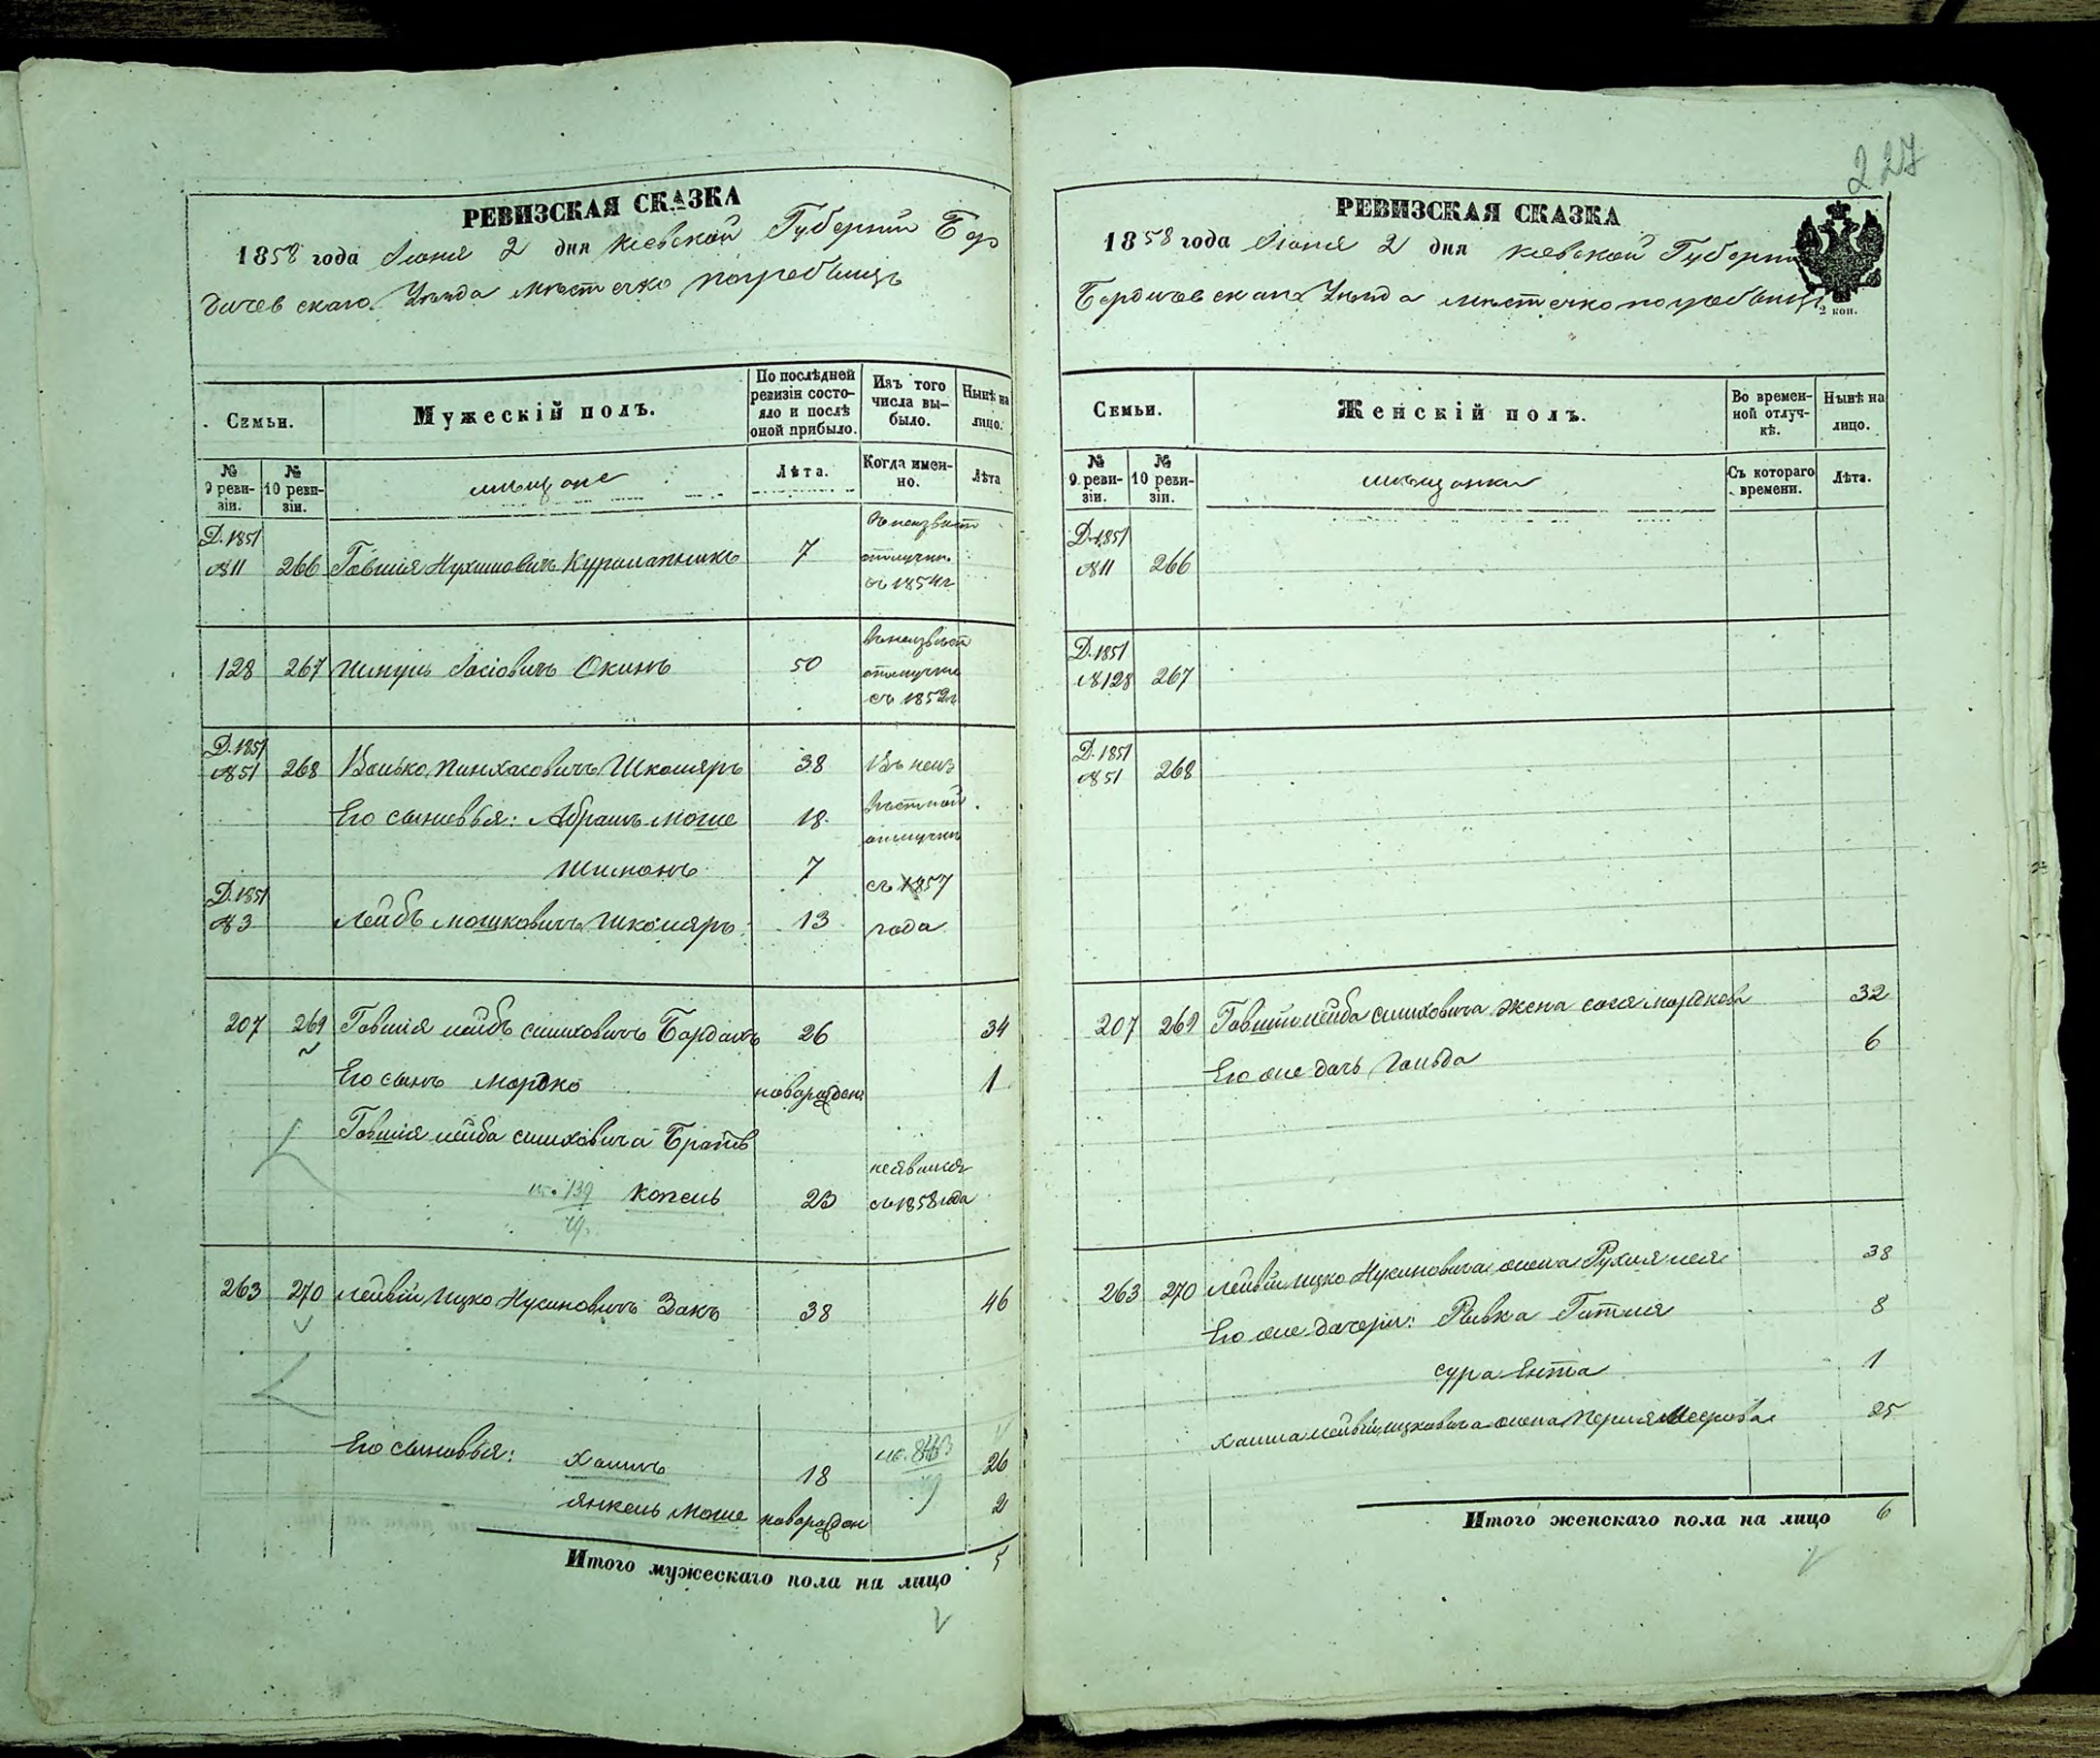 227
РЕВИЗСКАЯ СКАЗКА
1858 года Іюня 2 дня Кіевской Губерніи Бер
дичевскаго Уѣзда мѣстечко Погребищъ
Семьи.
Мужескій полъ.
По послѣдней ревизіи состо-
яло и послѣ
оной прибыло.
Изъ того
числа вы-
было.
Нынѣ на
лицо.
№
9 реви-
зіи.
№
10 реви-
зіи.
мѣщане
Лѣта.
Когда имен-
но.
Лѣта
Д. 1851
№ 11 266 Говшія Нухимовичъ 7
отлучки
съ 1854 г
128 267 Шмуль Іосіовичъ Окинъ 50
отлучки
съ 1852 г
Д. 1851
№ 51 268 Волько Пинхасовичъ Школяръ 38 Въ неиз
Его сыновья: Абрамъ Моше 18 вѣстной
отлучкѣ
Шимонъ 7 съ 1857
Д. 1851
№ 3 Лейбъ Мошковичъ Школяръ 13 года
207 269 Говшія Лейбъ Симховичъ Бордахъ 26 34
Его сынъ Мордко новорожден 1
Говшія Лейба Симховича Братъ
139 Копель 20 неявился
съ 1858 года
263 270 Лейвій Ицко Нусиновичъ Закъ 38 46
Его сыновья: Хаимъ 18 26
Янкель Моше новорожден 2
Итого мужескаго пола на лицо 5
РЕВИЗСКАЯ СКАЗКА
1858 года Іюня 2 дня Кіевской Губерніи
Бердичевскаго Уѣзда мѣстечко Погребищъ
2 коп.
Семьи.
Женскій полъ.
Во времен-
ной отлуч-
кѣ.
Нынѣ на
лицо.
№
9 реви-
зіи.
№
10 реви-
зіи.
мѣщанки
Съ котораго
времени.
Лѣта.
Д. 1851
№ 11 266
Д. 1851
№ 128 267
Д. 1851
№ 51 268
207 269 Говшіи Лейба Симховича жена Сося Мордкова 32
Его же дочь Гольда 6
263 270 Лейвіи Ицко Нусиновича жена Рухля Лея 38
Его же дочери: Ривка Гитля 8
Сура Ента 1
Хаима Лейвіи Ицковича жена Перля Меерова 25
Итого женскаго пола на лицо 6